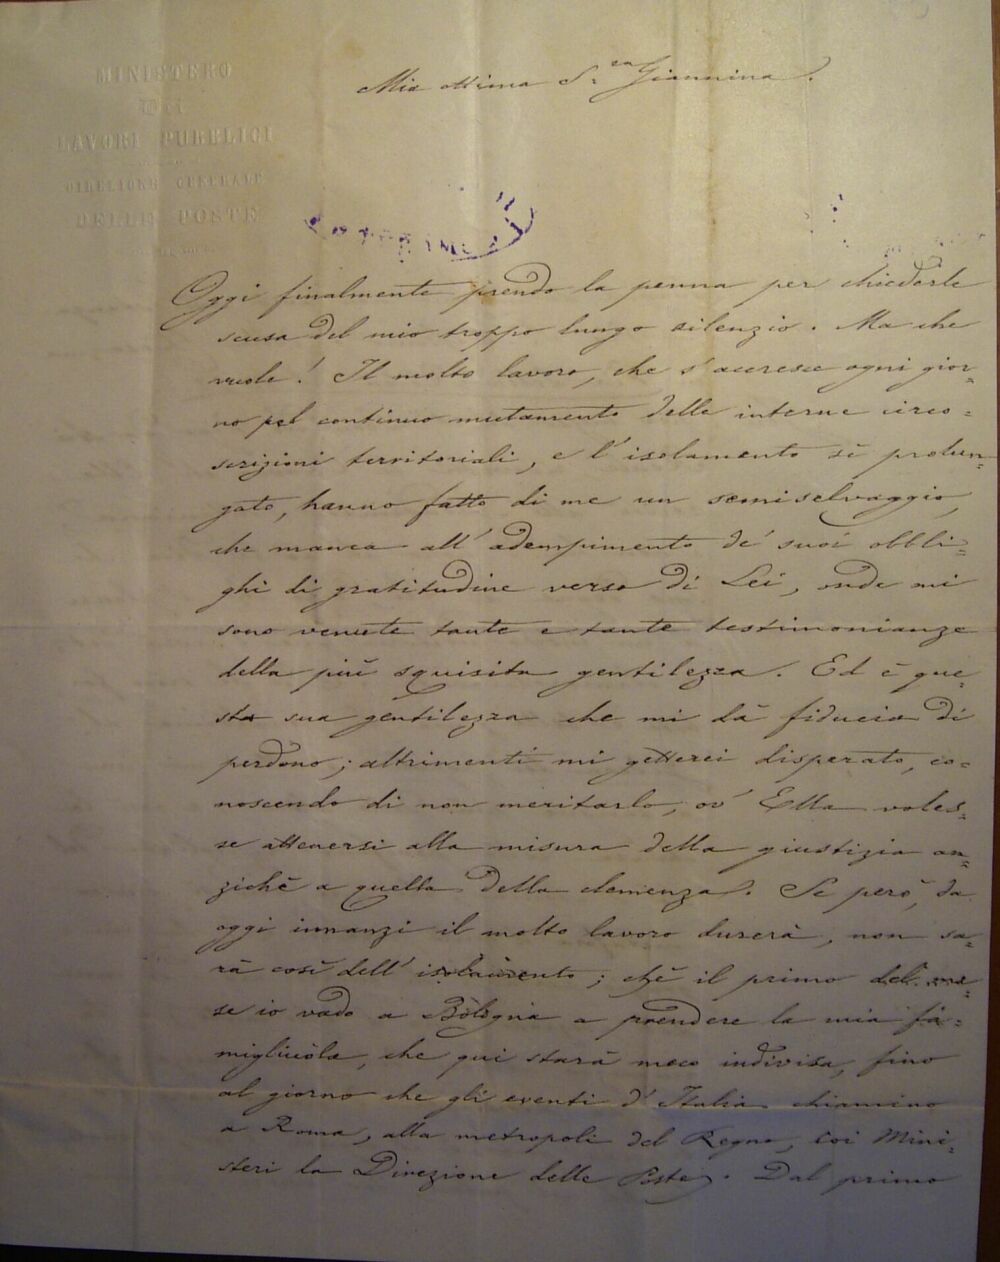 MINISTERO
DEI
LAVORI PUBBLICI
DIREZIONE GENERALE
DELLE POSTE
Mia ottima S.ra Giannina.
Oggi finalmente prendo la penna per chiederle
scusa del mio troppo lungo silenzio. Ma che
vuole! Il molto lavoro, che s'accresce ogni gior=
no pel continuo mutamento delle interne circo=
scrizioni territoriali, e l'isolamento sì prolun=
gato, hanno fatto di me un semiselvaggio,
che manca all'adempimento de' suoi obbli=
ghi di gratitudine verso di Lei, onde mi
sono venute tante e tante testimonianze
della più squisita gentilezza. Ed è que=
sta sua gentilezza che mi dà fiducia di
perdono; altrimenti mi getterei disperato, co=
noscendo di non meritarlo, ov' Ella voles=
se attenersi alla misura della giustizia an=
zichè a quella della clemenza. Se però, da
oggi innanzi il molto lavoro durerà, non sa=
rà così dell'isolamento; chè il primo del me=
se io vado a Bologna a prendere la mia fa=
migliuola, che qui starà meco indivisa, fino
al giorno che gli eventi d'Italia chiamino
a Roma, alla metropoli del Regno, coi Mini=
steri la Direzione delle Poste. Dal primo